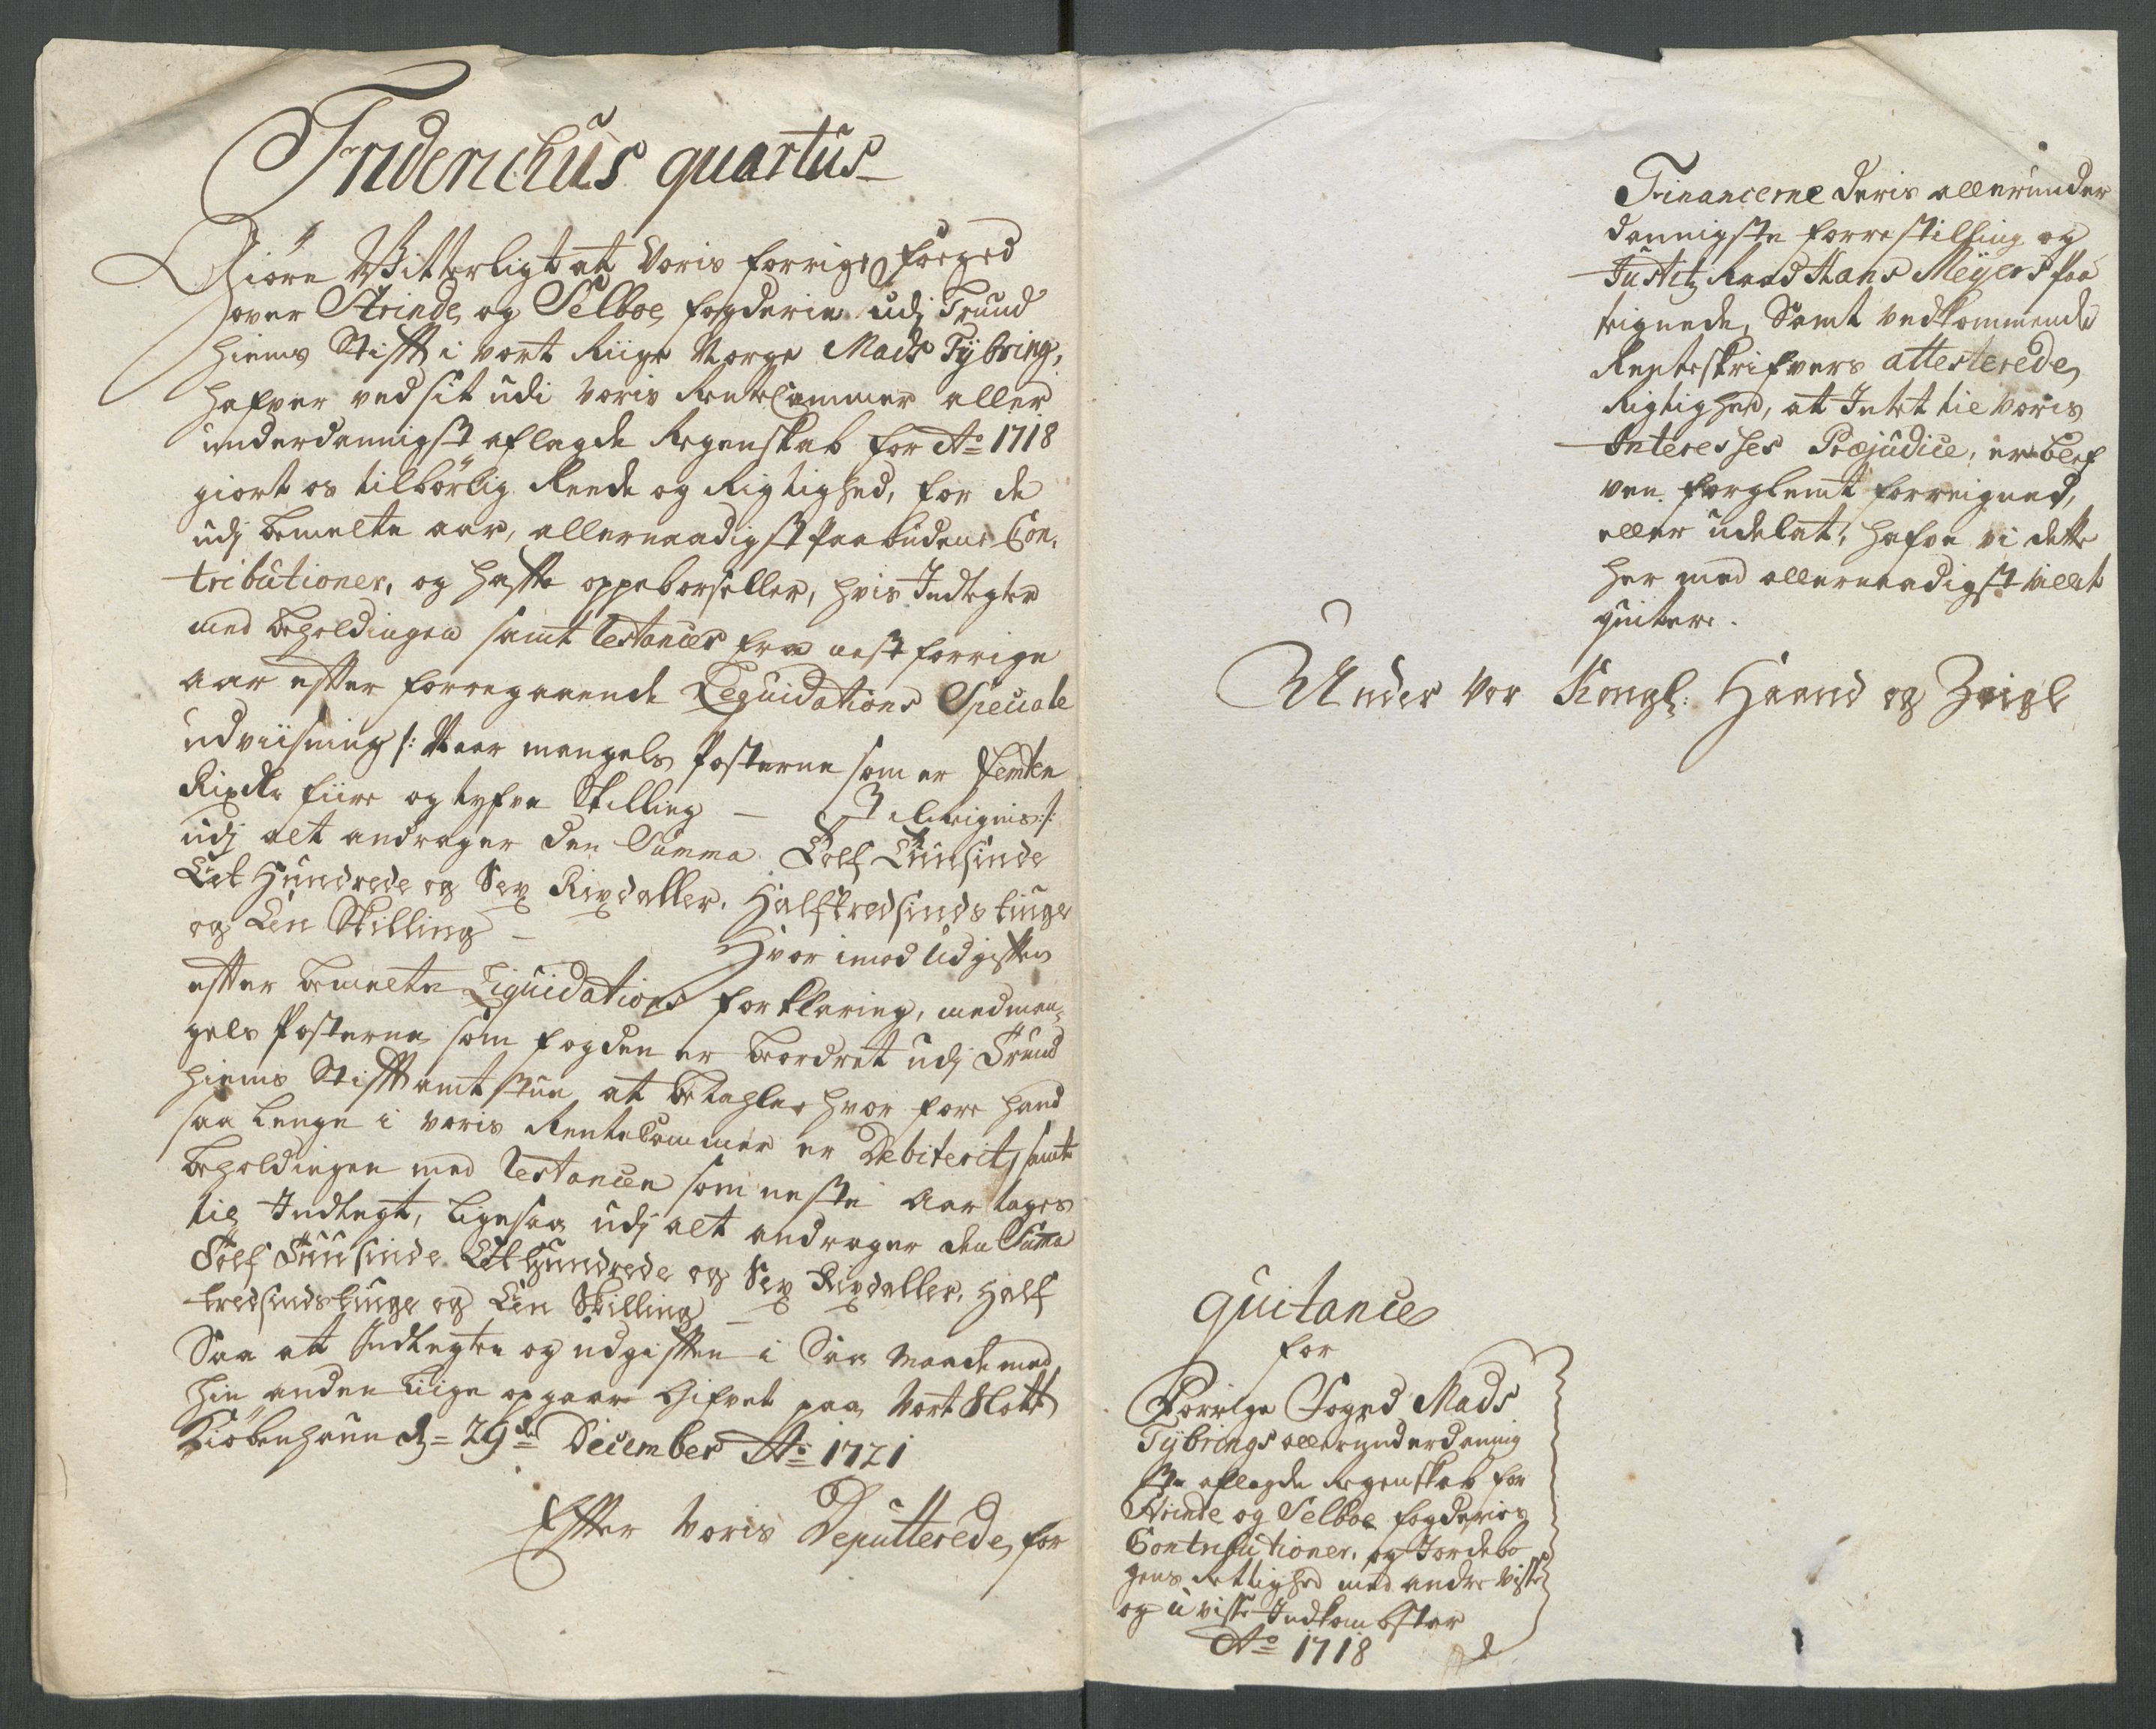 Friderichus quartus
Giöre Vitterligt at Voris forrige foeged
over Strinde og Selboe fogderie udj Trund
hiems Stifft i vort Riige Norge Mads Tÿbring,
hafver ved sit udi voris RenteCammer aller
underdannigst aflagde Regenskab for Ao 1718
giort os tilbörlig Reede og Rigtighed, for de
udj bemelte aar, allernaadigst paabudene Con,
tributioner, og haffte oppeborseller, hvis Indtegter
med beholdingen samt Restancer fra nest forrige
aar effter forregaaende Liquidations Speciale
udviisning /: Naar mangels Posterne som er femten
Rixdlr fiire og tyfve Skilling —
udj alt andrager den Summa Tolf Tuusinde
Eet Hundrede og Sex Rixdaller, Halftredsindstiuge
og Een Skilling —
Hvor imod Udgifften
effter bemelte Liquidations forklaring, med man,
gels Posterne som fogden er beordret udj Trund
hiems Stifftamtstue at betahle, hvor fore hand
saa lenge i voris RenteCammer er Debiterit, samt
beholdingen med Restancen som neste Aar tages
til Indtegt, ligesaa udj alt andrager den Suma
Tolf Tuusinde Eet Hundrede og Sex Rixdaller, Half
tredsindstiuge og Een Skilling —
Saa att Indtegten og udgifften i Saa Maade med
hin anden liige opgaar Gifvet paa Vort Slott
Kiöbenhaun d = 29de December Ao 1721
Effter Voris Deputterede for
Financerne deris allerunder
dannigste forrestilling og
Justitz Raad Hans Meÿers paa
teignede, Samt vedkommende
Renteskrifvers attesterede
Rigtighed, at Intet til Voris
Interesses Præjudice, er blef
ven forglemt forreigned,
eller udelat, hafve vi dette
her med allernaadigst villet
quitere.
Under Vor Kongl: Haand og Zeigl
quitance
for
Forrige Foged Mads
Tÿbrings allerunderdannig
ste aflagde Regenskab for
Strinde og Selboe fogderies
Contributioner, og Jordebo
gens Rettighed med andre Visse
og u visse Indkombster
Ao 1718